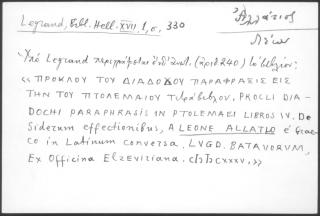 Legrand, Bibl. Hell. XVII, 1, σ. 330
Ἀλλάτιος
Λέων
Ὑπὸ Legrand περιγράφεται ὑπ' ἀριθ. (ἀριθ 240) τὸ βιβλίον:
« ΠΡΟΚΛΟΥ ΤΟΥ ΔΙΑΔΟΧΟΥ ΠΑΡΑΦΡΑΣΙΣ ΕΙΣ
ΤΗΝ ΤΟΥ ΠΤΟΛΕΜΑΙΟΥ τετράβιβλον. PROCLI DIA-
DOCHI PARAPHRASIS IN PTOLEMAEI LIBROS IV. De
Siderum effectionibus, A LEONE ALLATIO è Grae-
co in Latinum conversa. LVGD. BATAVORUM,
Ex Officina Elzeviriana. CIƆIƆCXXXV.»